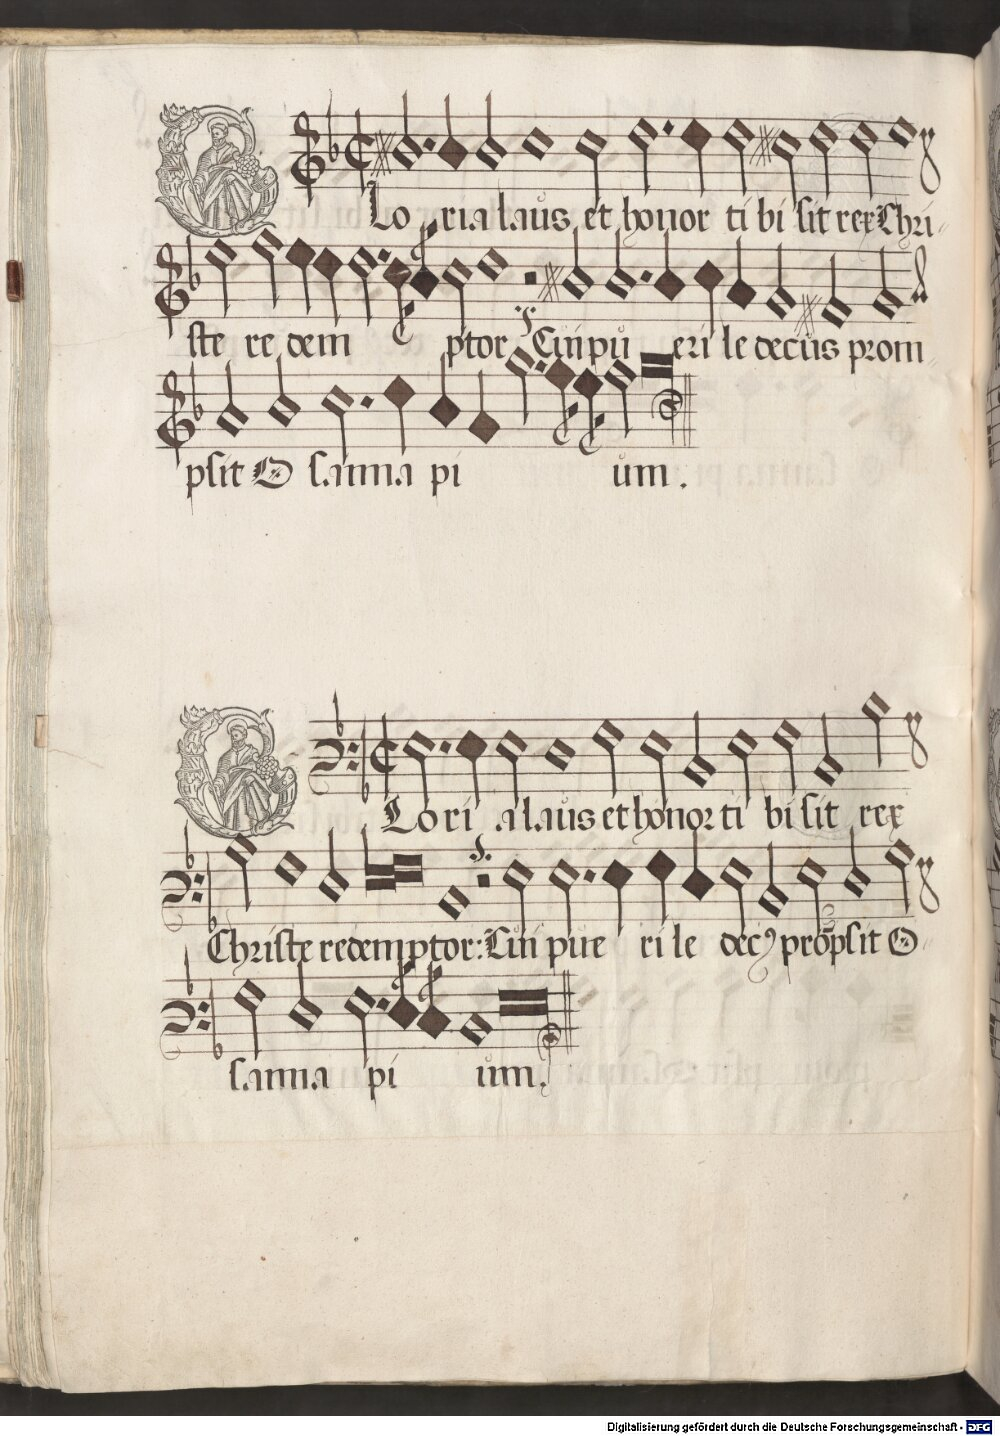 GLo ria laus et honor ti bi sit rex Chri-
ste re dem ptor Cui pu eri le decus prom-
psit O sanna pi um.
GLo ri a laus et honor ti bi sit rex
Christe redemptor: Cui pue ri le decꝰ prōpsit O-
sanna pi um.
Digitalisierung gefördert durch die Deutsche Forschungsgemeinschaft - DFG